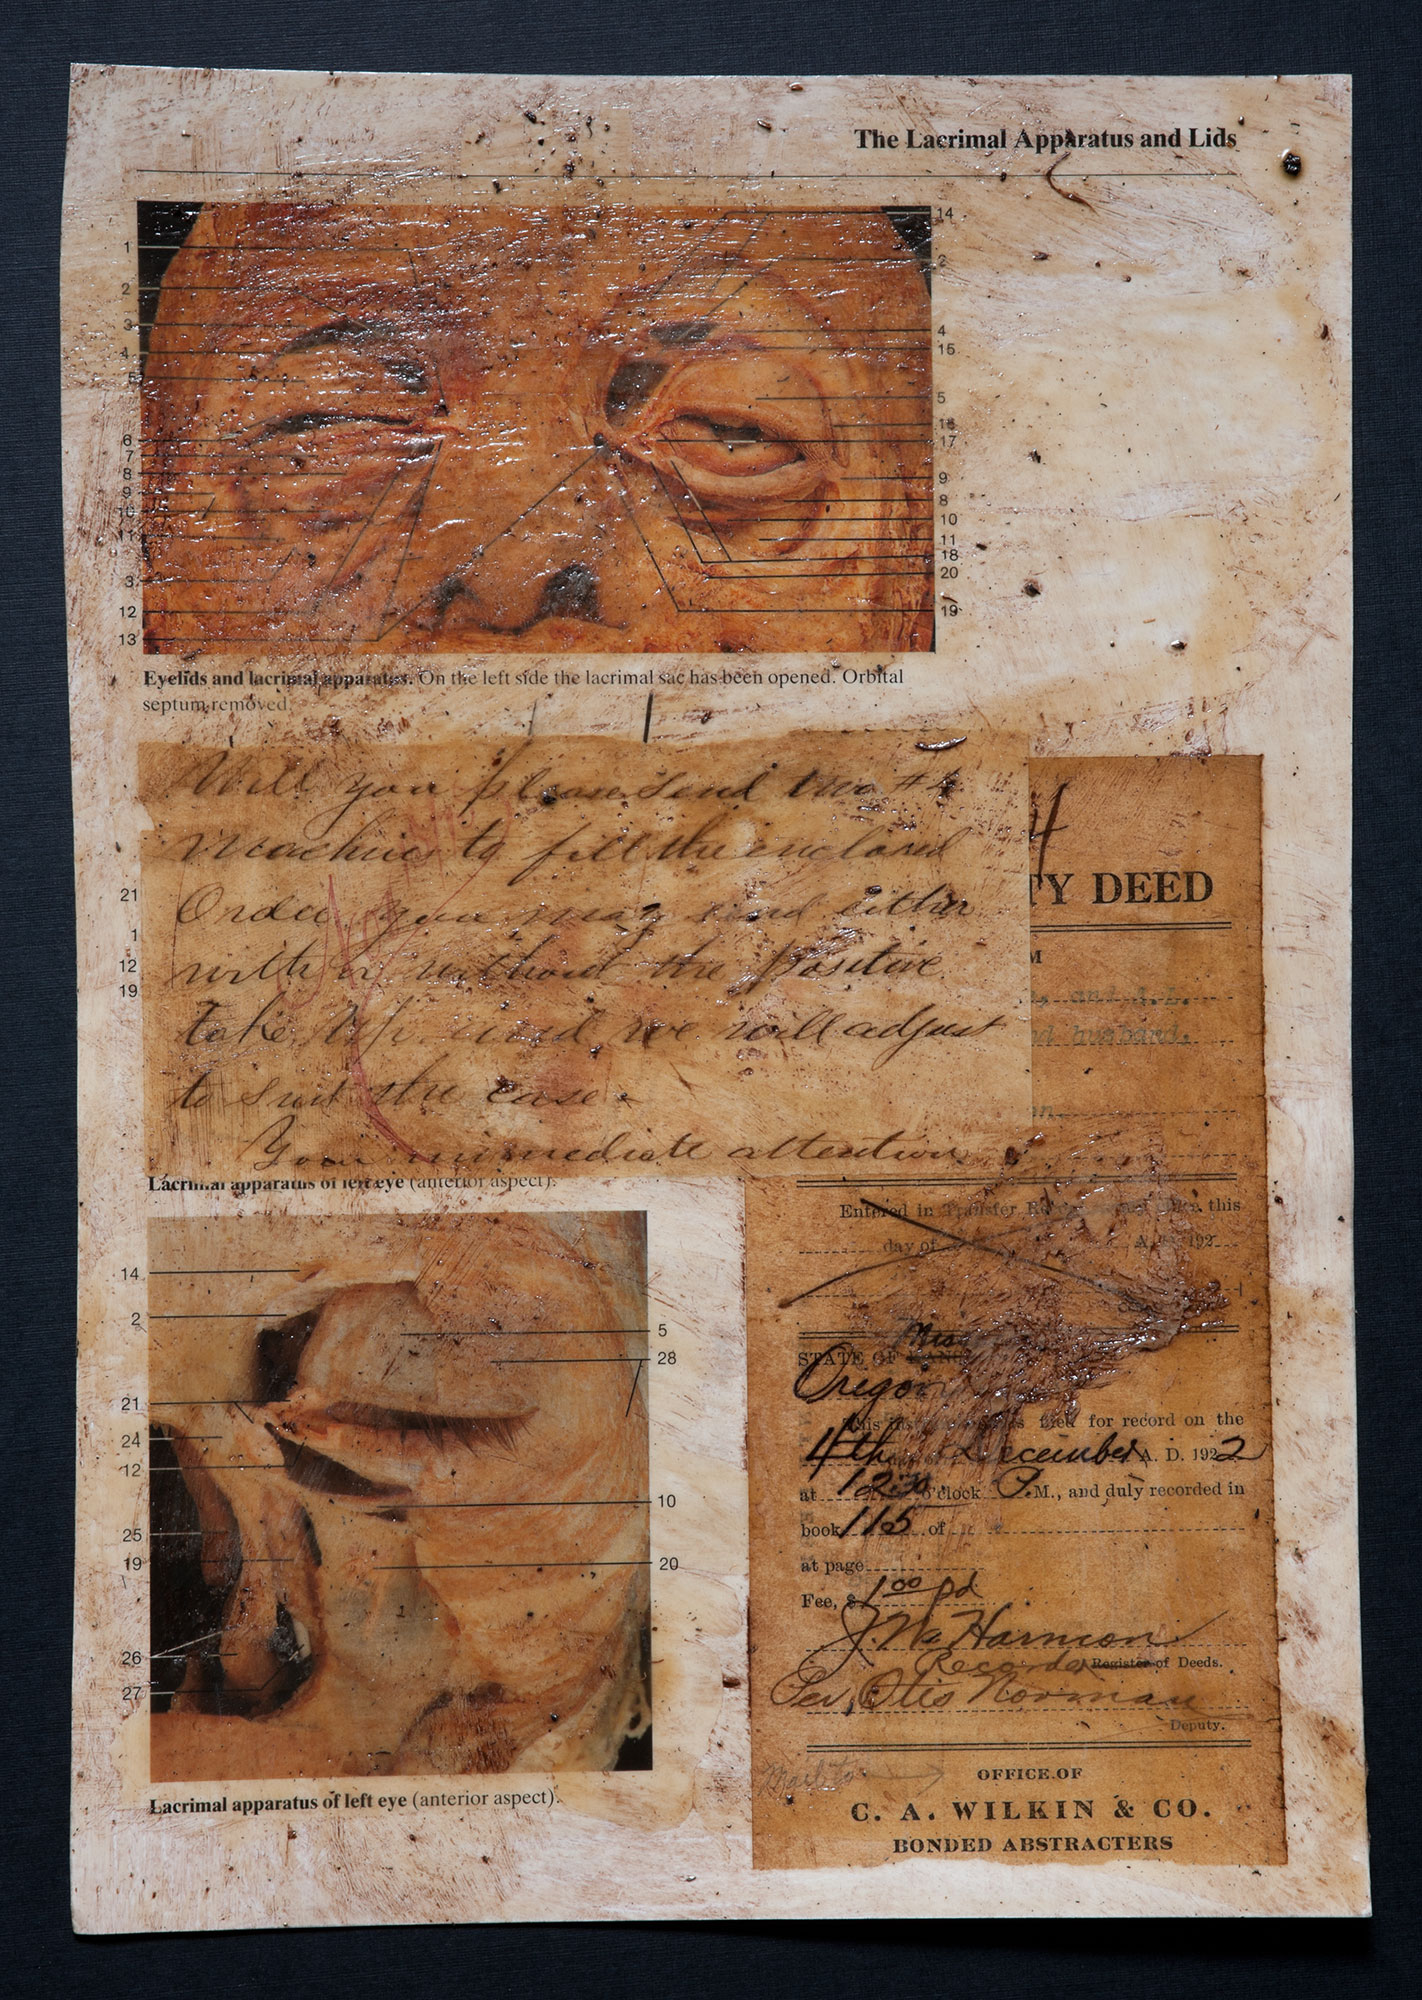 The Lacrimal Apparatus and Lids
1
2
3
4
5
6
7
8
9
10
11
3
12
13
14
2
4
15
5
16
17
9
8
10
11
18
20
19
Eyelids and lacrimal apparatus. On the left side the lacrimal sac has been opened. Orbital
septum removed.
Will you please send two #4
Machines to fill the enclosed
Order you may send either
with or without the Positive
take up and we will adjust
to suit the case
Your immediate attention
21
1
12
19
Lacrimal apparatus of left eye (anterior aspect).
14
2
21
24
12
25
19
26
27
5
28
10
20
Lacrimal apparatus of left eye (anterior aspect).
4
TY DEED
M
and J. L.
husband.
on
Entered in Transfer this
day of A. 192
Mis
STATE OF
Oregon
This for record on the
4th December A. D. 1922
at 12:30 o'clock P. M., and duly recorded in
book 115 of
at page
Fee, $ 1 00 pd
Harmon
Recorder Register of Deeds.
Otis Norman
Deputy.
Mail to
OFFICE OF
C. A. WILKIN & CO.
BONDED ABSTRACTERS